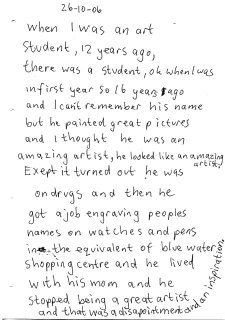 26-10-06
when I was an art
student, 12 years ago,
there was a student, ok when I was
in first year so 16 years ago
and I cant remember his name
but he painted great pictures
and I thought he was an
amazing artist, he looked like an amazing
artist,
Exept it turned out he was
on drugs and then he
got a job engraving peoples
names on watches and pens
in the equivalent of blue water
shopping centre and he lived
with his mom and he
stopped being a great artist
and that was a disapointment and an inspiration.